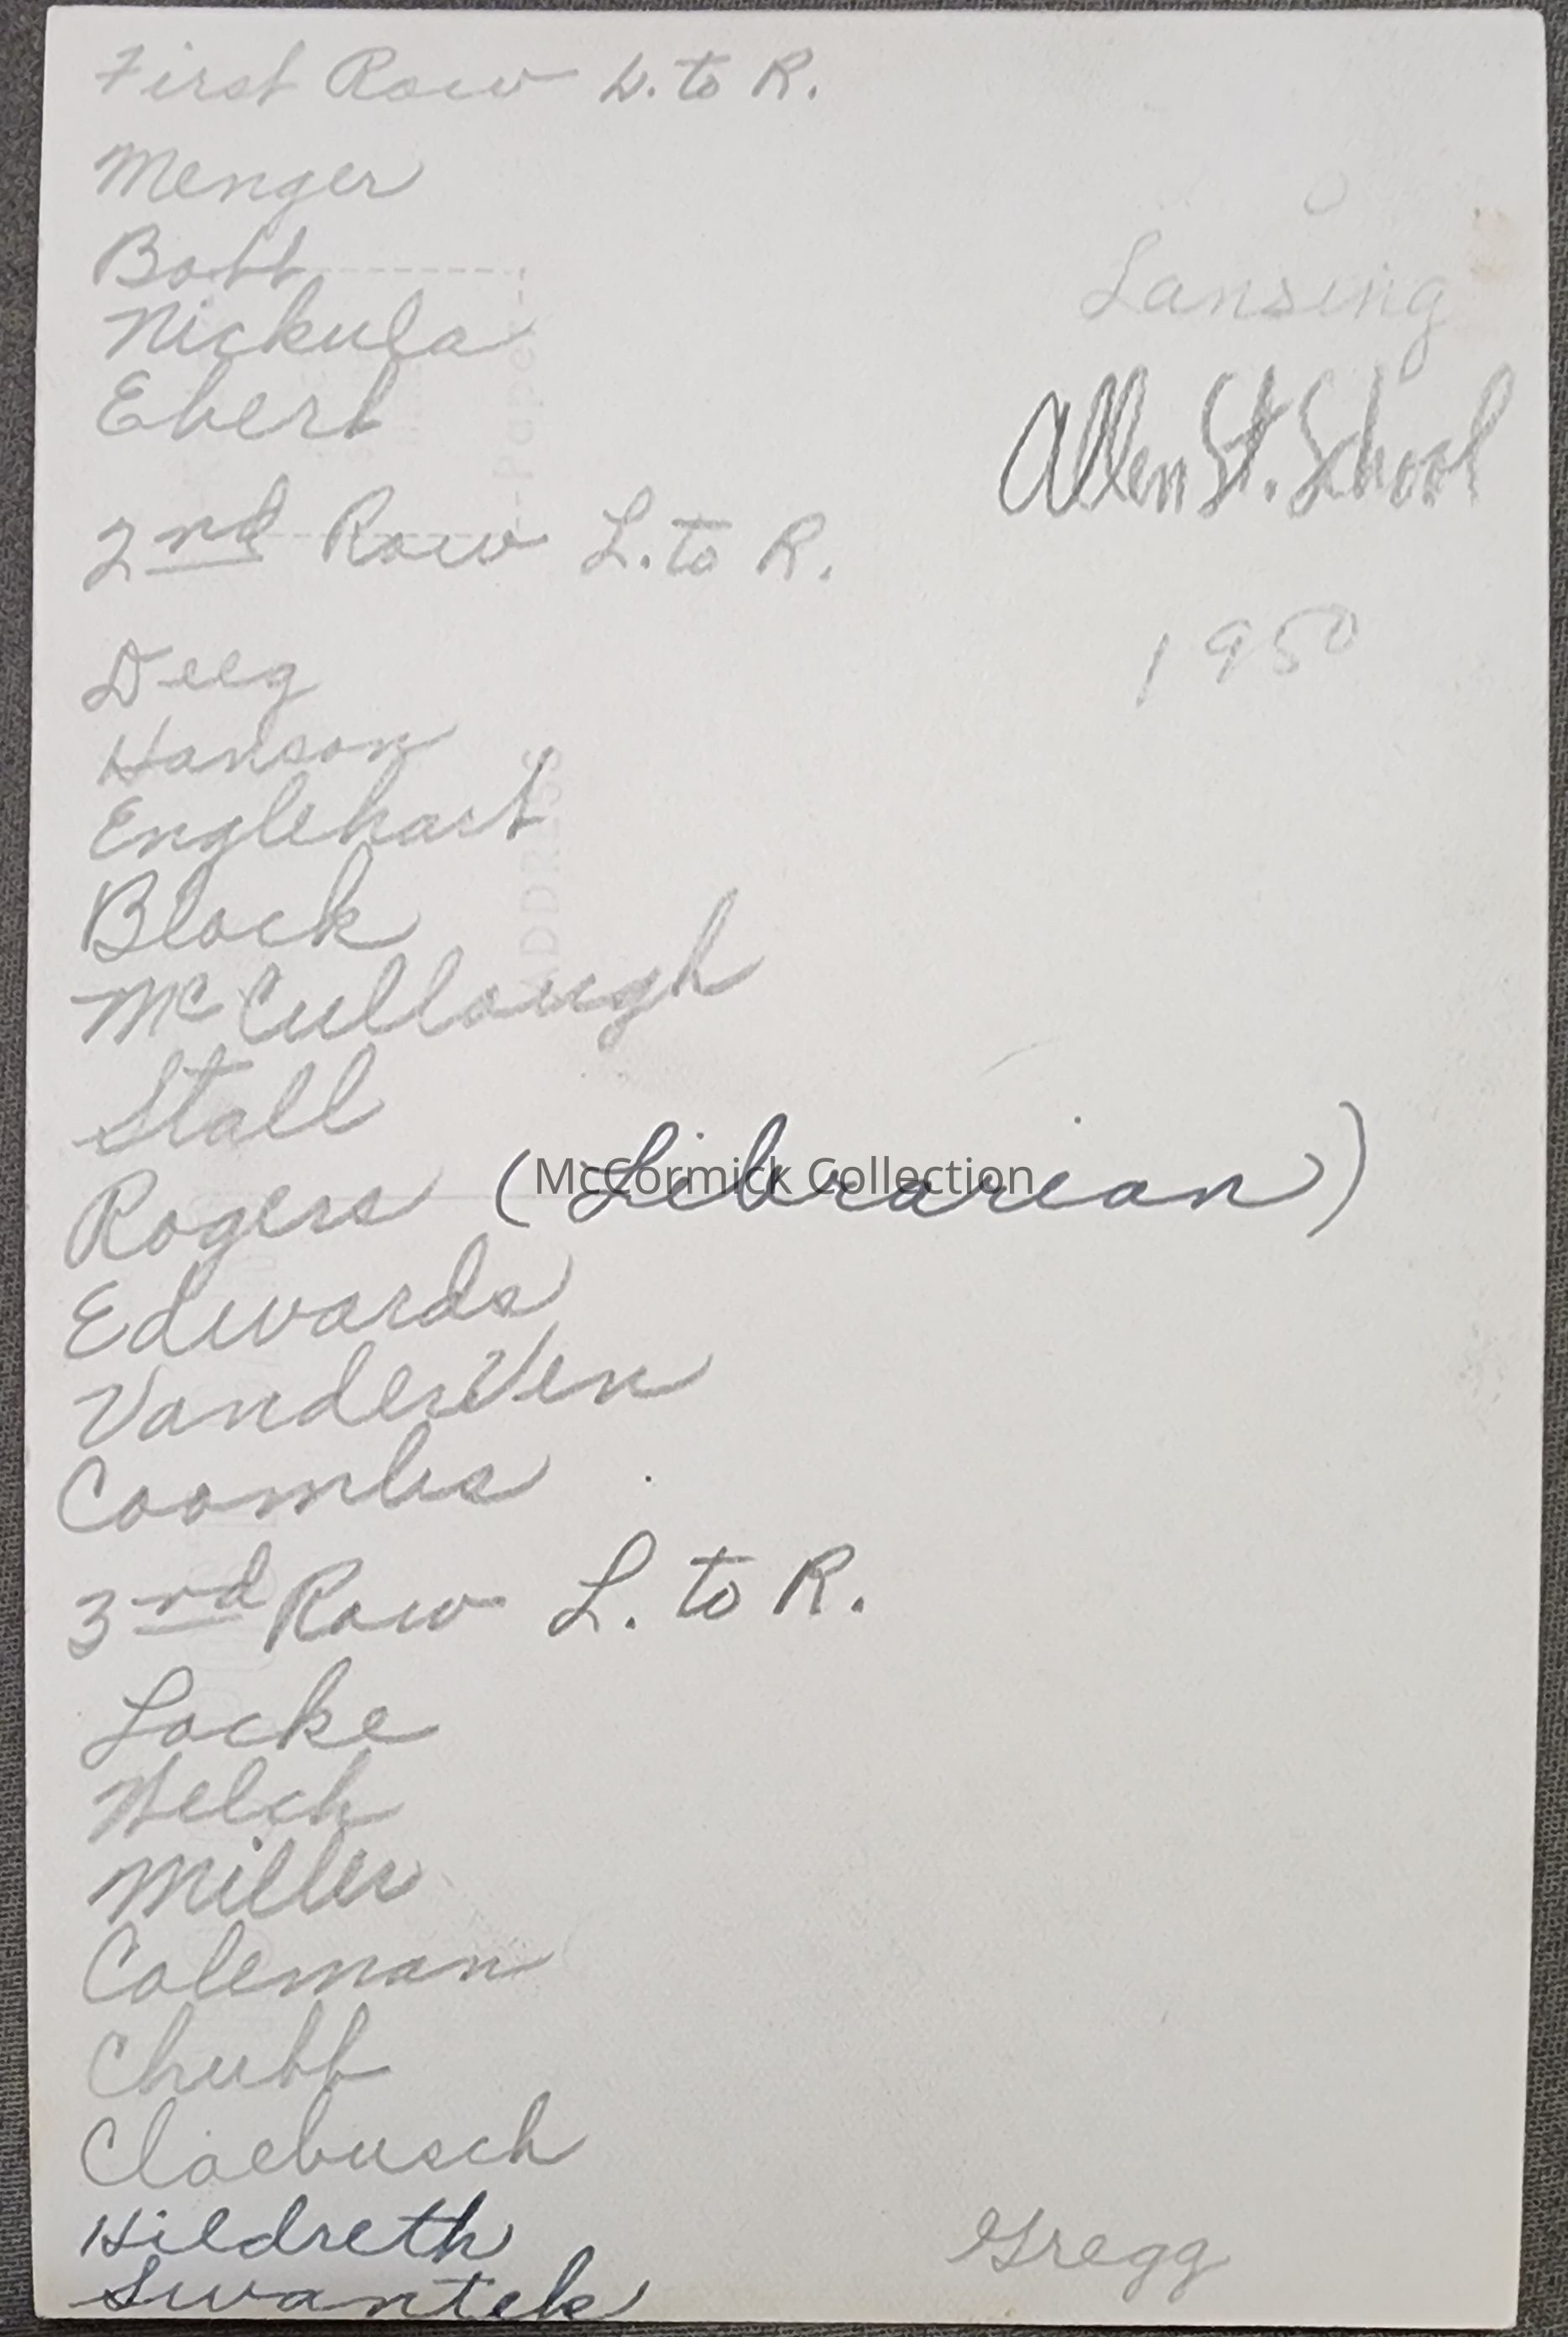 First Row L. to R.
Menger
Bott
Nickula
Ebert
Lansing
Allen St. School
2nd Row L. to R.
1950
Deeg
Hanson
Englehart
Block
McCullough
Stall
Rogers (Librarian)
McCormick Collection
Edwards
VanderVen
Coombs
3rd Row L. to R.
Locke
Welch
Miller
Coleman
Chubb
Claebusch
Hildreth
Swantek
Gregg
ADDRESS